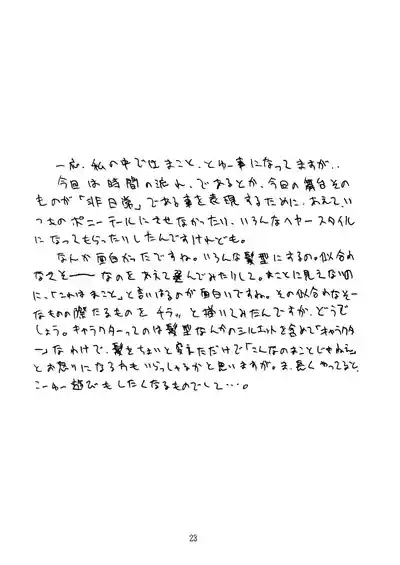 一応、私の中ではまこと、とゆー事になってますが、、
今回は時間の流れ、であるとか、今回の舞台その
ものが「非日常」である事を表現するために、あえていつ
つものポニーテールにさせなかったり、いろんなヘヤースタイル
になってもらったりしたんですけれども。
なんか面白かったですね。いろんな髪型にするの。似合わ
なさそーーなのをあえて選んでみたりして。まことに見えないの
に、「これはまこと」と言いはるのが面白いですね。その似合わなそー
なものの際たるものをチラッと描いてみたんですが、どうで
しょう。キャラクターってのは髪型なんかのシルエットを含めて「キャラクタ
ー」なわけで、髪をちょいと変えただけで「こんなのまことじゃねえ」
とお怒りになる方もいらっしゃるかと思いますが。ま、長くやってると、
こーゆー遊びもしたくなるものでして…。
23